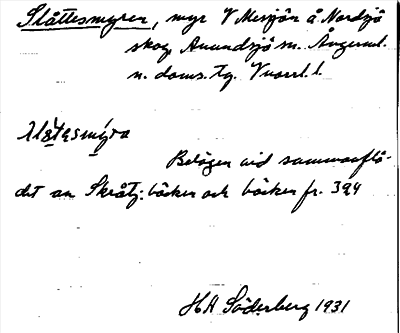 Slåttesmyren, myr V Mesjön å Nordsjö
skog Anundsjö sn. Ångerml.
n. doms. tg. V norrl. l.
Belägen vid sammanflö-
det av Skråtj: bäcken och bäcken fr. 394
HA Söderberg 1931